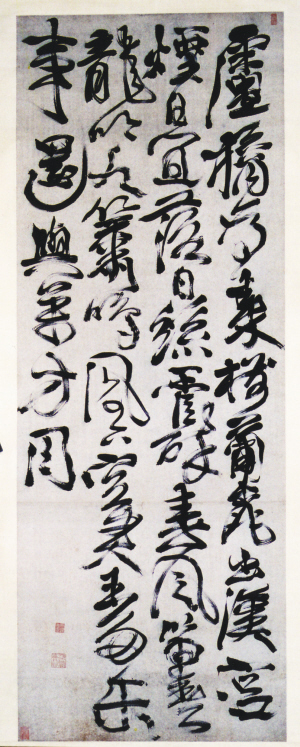 盧橘為秦樹蒲桃出漢宮
煙花宜落日絲管醉春風笛奏
龍吟水簫鳴鳳下空君王多樂
事還與萬方同